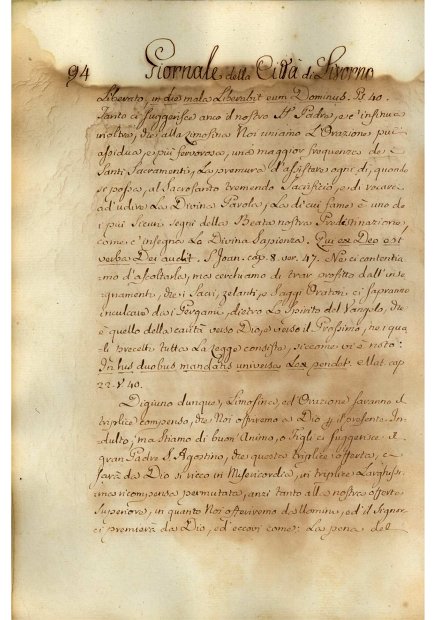 94 Giornale della Città di Livorno
Liberato, in die mala Liberabit eum Dominus. Ps. 40.
Tanto ci suggerisce anco il nostro Sto Padre, e c'insinua
inoltre, che alla Limosina Noi uniamo L'Orazione più
assidua, e più fervorosa, una maggior frequenza de
Santi Sacramenti, La premura d'assistere ogni dì, quando
si possa, al Sacrosanto tremendo Sacrificio, e di vacare
ad udire La Divina Parola, La di cui fame è uno de
i più sicuri segni della Beata nostra Predestinazione
come c'insegna La Divina Sapienza. Qui ex Deo est
verba Dei audit. S. Joan. cap. 8. ver. 47. Ne ci contentia
mo d'ascoltarla, ma cerchiamo di trar profitto dall'inse
gnamenti, che i Sacri, zelanti, e Saggi Oratori ci sapranno
inculcare da i Pergami, dietro Lo Spirito del Vangelo, che
è quello della carità verso Dio, e verso il Prossimo, ne i qua
li precetti tutta La Legge consiste, siccome vi è noto:
In his duobus mandatis universa Lex pendet. Mat. cap
22. V. 40.
Digiuno dunque, Limosina, ed Orazione saranno il
triplice compenso, che Noi offriremo a Dio per il presente In-
dulto, ma stiamo di buon'Animo, o Figli ci suggerisce il
gran Padre S. Agostino, che questa triplice offerta, ci
sarà da Dio sì ricco in Misericordia, in triplice Larghiss:
ma ricompensa permutata, anzi tanto alla nostra offerta
Superiore, in quanto Noi offeriremo da Uomini, ed il Signor
ci premierà da Dio, ed eccovi come: La pena del